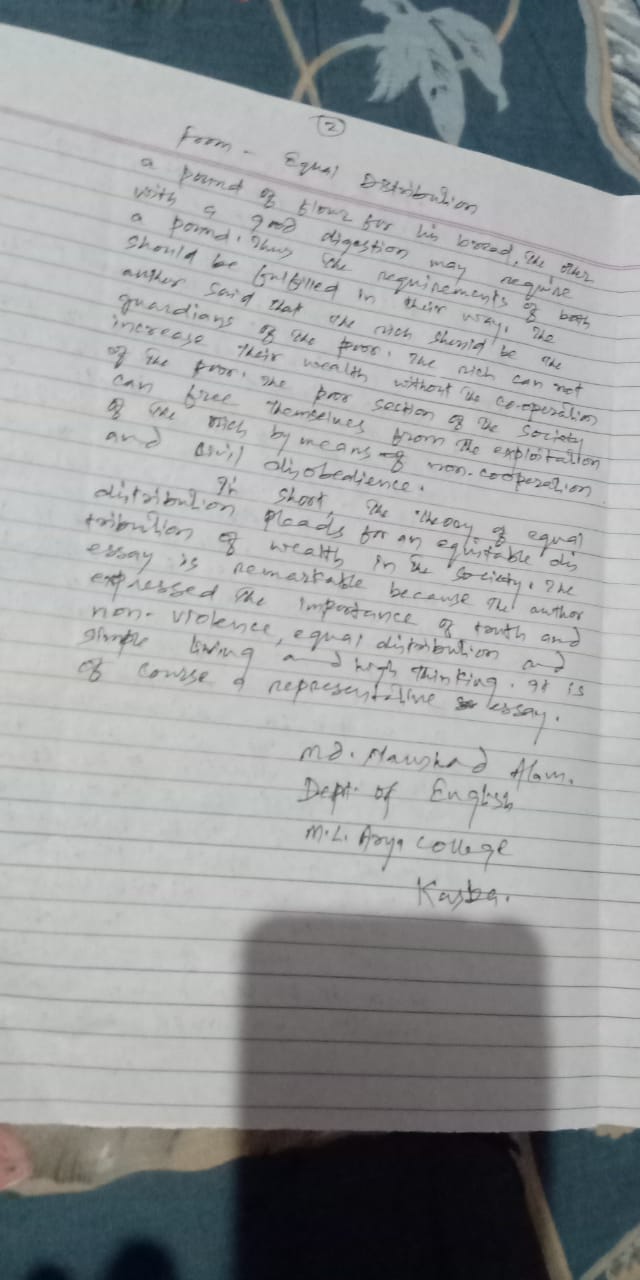 ②
From - Equal Distribution
a pound of flour for his bread, the other
with a good digestion may require
a pound. Thus the requirements of both
should be fulfilled in their way. The
author said that the rich should be the
guardians of the poor. The rich can not
increase their wealth without the co-operation
of the poor. The poor section of the society
can free themselves from the exploitation
of the rich by means of non-cooperation
and civil disobedience.
In short, the theory of equal
distribution pleads for an equitable dis
tribution of wealth in the society. The
essay is remarkable because the author
expressed the importance of truth and
non-violence, equal distribution and
simple living and high thinking. It is
of course a representative essay.
Md. Naushad Alam.
Dept. of English
M.L. Arya College
Kasba.